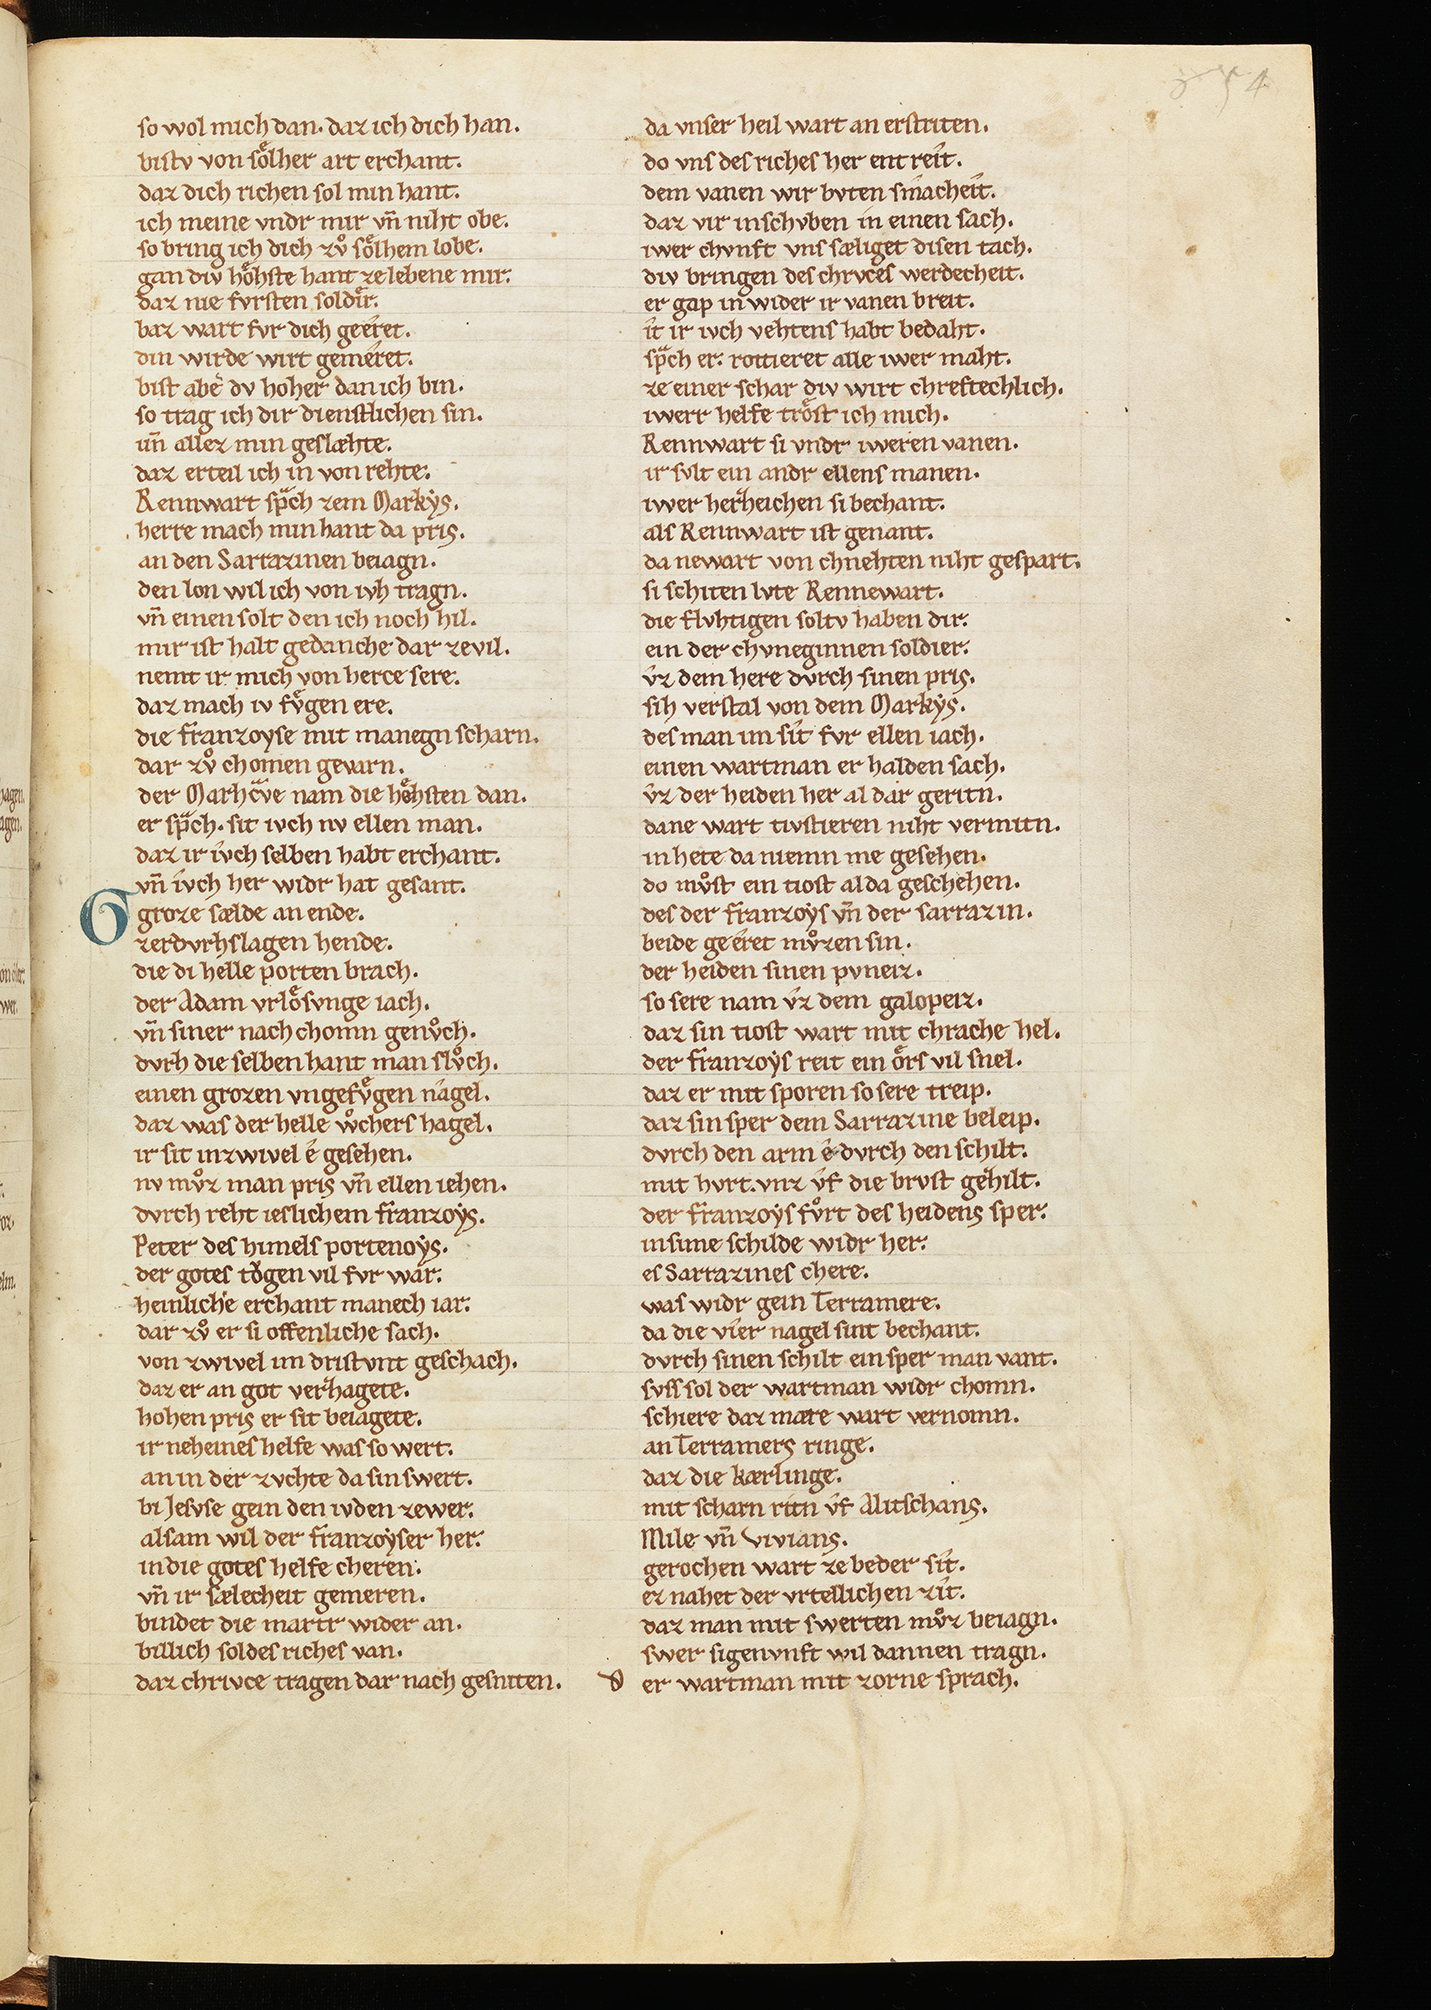 so wol mich dan. daz ich dich han.
bistv von soͤlher art erchant.
daz dich richen sol min hant.
ich meine vndr mir vn̄ niht obe.
so bring ich dich zvͦ soͤlhem lobe.
gan div hoͤhste hant ze lebene mir.
daz nie fvrsten soldir.
baz wart fvr dich geeret.
din wirde wirt gemeret.
bist abe dv hoher dan ich bin.
so trag ich dir dienstlichen sin.
vn̄ allez min geslæhte.
daz erteil ich in von rehte.
Rennwart spͣch zem Markys.
herre mach min hant da pris.
an den Sarrazinen beiagn.
den lon wil ich von ivh tragn.
vn̄ einen solt den ich noch hil.
mir ist halt gedanche dar ze vil.
nemt ir mich von herce sere.
daz mach iv fvͤgen ere.
die franzoyse mit manegn scharn.
dar zvͦ chomen gevarn.
der Marhcͣve nam die hoͤhsten dan.
er spͣch. sit ivch nv ellen man.
daz ir ivch selben habt erchant.
vn̄ ivch her widr hat gesant.
O groze sælde an ende.
zerdvrhslagen hende.
die di helle porten brach.
der Adam vrloͤsvnge iach.
vn̄ siner nach chomn genvͦch.
dvrh die selben hant man slvͦch.
einen grozen vngefvͤgen nagel.
daz was der helle wͦchers hagel.
ir sit inzwivel e gesehen.
nv mvͦz man pris vn̄ ellen iehen.
dvrch reht ieslichem franzoys.
Peter des himels portenoys.
der gotes toͮgen vil fvr war.
heinliche erchant manech iar.
dar zvͦ er si offenliche sach.
von zwivel im dristvnt geschach.
daz er an got verzhagete.
hohen pris er sit beiagete.
ir neheines helfe was so wert.
an in der zvchte da sin swert.
bi Jesvse gein den ivden ze wer.
alsam wil der franzoyser her.
in die gotes helfe cheren.
vn̄ ir sælecheit gemeren.
bindet die martr wider an.
billich soldes riches van.
daz chrivce tragen dar nach gesniten.
da vnser heil wart an erstriten.
do vns des riches her ent reit.
dem vanen wir bvten smacheit.
daz wir in schvben in einen sach.
iwer chvnft vns sæliget disen tach.
div bringen des chrvces werdecheit.
er gap in wider ir vanen breit.
it ir ivch vehtens habt bedaht.
spͣch er. rottieret alle iwer maht.
ze einer schar div wirt chreftechlich.
iwerr helfe troͤst ich mich.
Rennwart si vndr iweren vanen.
ir svlt ein andr ellens manen.
iwer herzheichen si bechant.
als Rennwart ist genant.
da newart von chnehten niht gespart.
si schiten lvte Rennewart.
die flvhtigen soltv haben dir.
ein der chvneginnen soldier.
vz dem here dvrch sinen pris.
sih verstal von dem Markys.
des man im sit fvr ellen iach.
einen wartman er halden sach.
vz der heiden her al dar geritn.
dane wart tivstieren niht vermitn.
in hete da niemn me gesehen.
do mvͦst ein tiost al da geschehen.
des der franzoys vn̄ der sarrazin.
beide geeret mvͦzen sin.
der heiden sinen pvneiz.
so sere nam vz dem galopeiz.
daz sin tiost wart mit chrache hel.
der franzoys reit ein oͤrs vil snel.
daz er mit sporen so sere treip.
daz sin sper dem Sarrazine beleip.
dvrch den arm e dvrch den schilt.
mit hvrt. vnz vf die brvst gehilt.
der franzoys fvͦrt des heidens sper.
in sime schilde widr her.
es Sarrazines chere.
was widr gein Terramere.
da die vier nagel sint bechant.
dvrch sinen schilt ein sper man vant.
svss sol der wartman widr chomn.
schiere daz mære wart vernomn.
an Terramers ringe.
daz die kærlinge.
mit scharn ritn vf Alitschans.
Mile vn̄ Vivians.
gerochen wart ze beder sit.
ez nahet der vrteillichen zit.
daz man mit swerten mvͦz beiagn.
swer sigenvnft wil dannen tragn.
d er wartman mit zorne sprach.